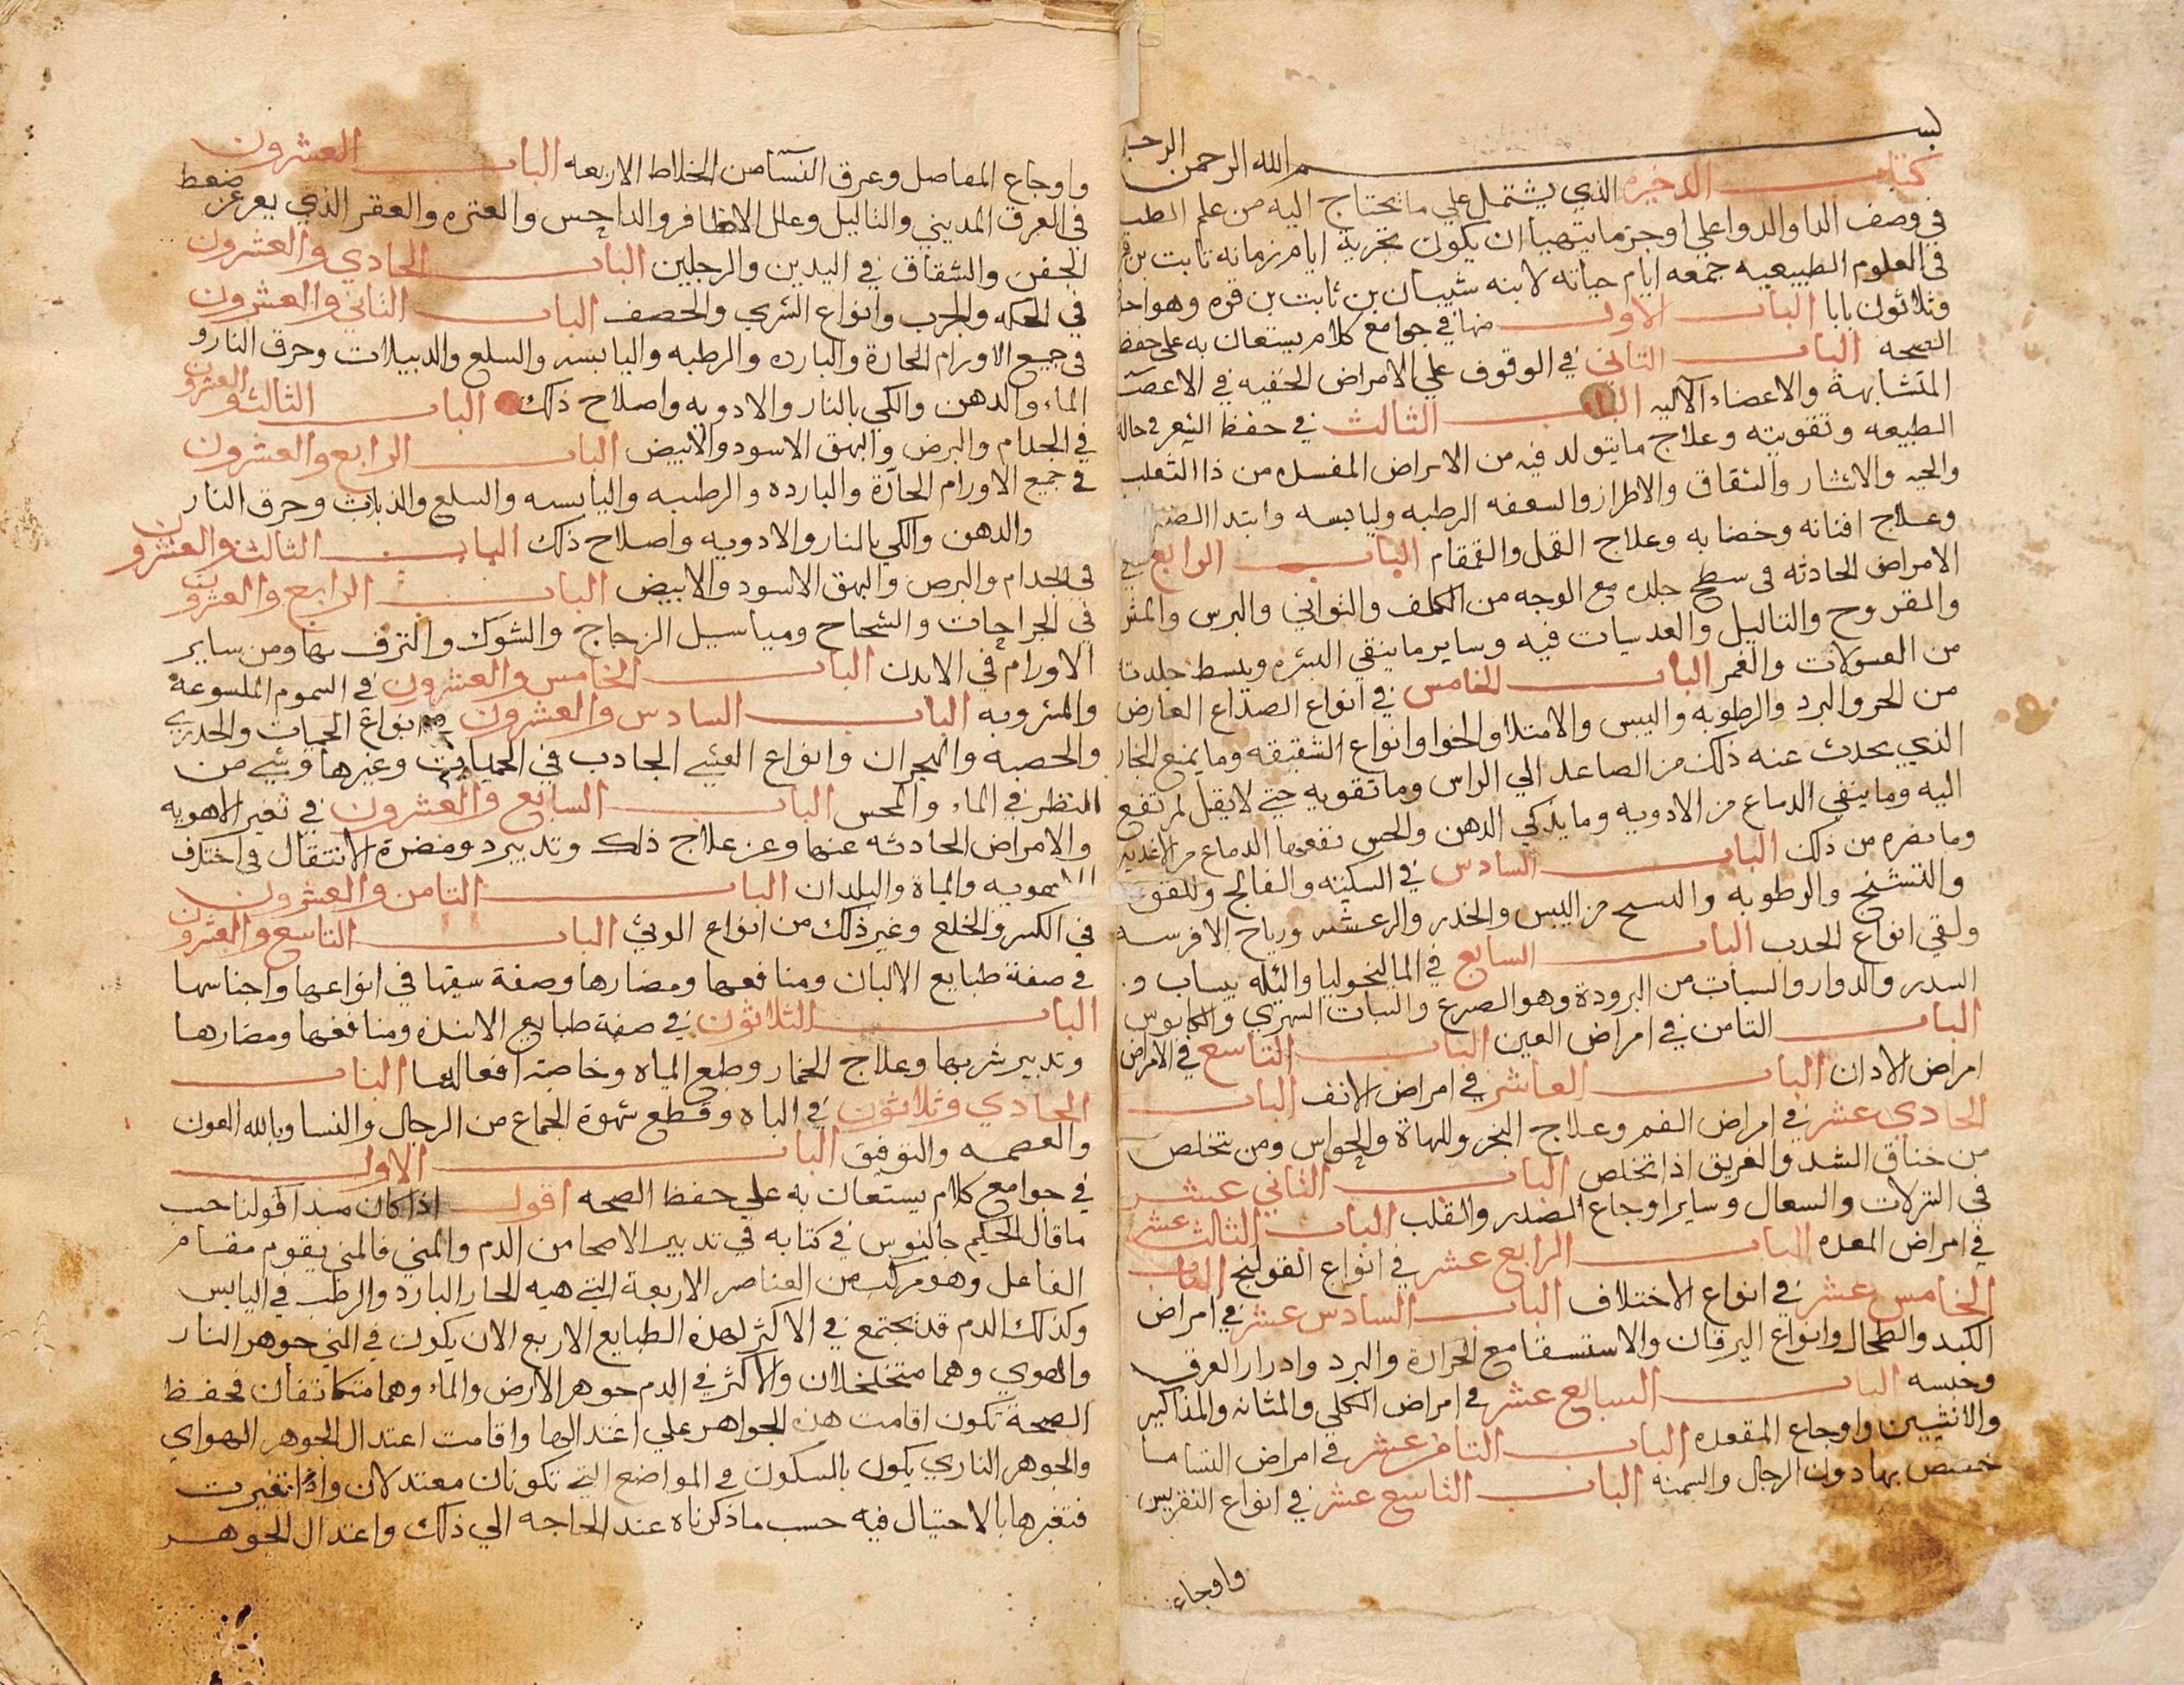 بسم الله الرحمن الرحيم
كتاب الدخيره الذي يشتمل علي ما تحتاج اليه من علم الطب
في وصف الدا والدوا علي اوجز ما يتهيا ان يكون تجربة ايام زمانه ثابت بن
في العلوم الطبيعيه جمعه ايام حياته لابنه شيبان بن ثابت بن قره وهو احد
وثلاثون بابا الباب الاول منها في جوامع كلام يستعان به علي حفظ
الصحه الباب الثاني في الوقوف علي الامراض الخفيه في الاعضا
المتشابهة والاعضاء الآليه الباب الثالث في حفظ الشعر في حاله
الطبيعه وتقويته وعلاج ما يتولد فيه من الامراض المفسده من ذا الثعلب
والحيه والانثار والشقاق والسعفه الرطبه وليابسه وابتدا
وعلاج افنانه وخضابه وعلاج القمل والقمقام الباب الرابع في
الامراض الحادثه في سطح جلده مع الوجه من الكلف والبرس
والقروح والثاليل والعدسيات فيه وساير ما ينقي البشره ويبسط جلدته
من الغسولات والغمر الباب الخامس في انواع الصداع العارض
من الحر والبرد والرطوبه واليبس والامتلا والخوا وانواع الشقيقه وما يمنع البخار
الذي يحدث عنه ذلك من الصاعد الي الراس وما تقويه حتي لا يقبل لم تقع
اليه وما ينقي الدماغ من الادويه وما يذكي الدهن والحس نفعها الدماغ من الاغذيه
وما نضره من ذلك الباب السادس في السكته والفالج وللقوه
والتشنج والرطوبه من اليبس والخدر والرعشه ورياح الافرسه
ولقي انواع الحدب الباب السابع في الماليخوليا
السدر والدوار والسبات من البرودة وهو الصرع والسبات السهري والكابوس
الباب الثامن في امراض العين الباب التاسع في الامراض
امراض الادان الباب العاشر في امراض الانف الباب
الحادي عشر في امراض الفم وعلاج البخر وللهاة والحواس ومن تخلص
من خناق الشد والغريق اذا تخلص الباب الثاني عشر
في النزلات والسعال وساير اوجاع الصدر والقلب الباب الثالث عشر
في امراض المعده الباب الرابع عشر في انواع القولنج الباب
الخامس عشر في انواع الاختلاف الباب السادس عشر في امراض
الكبد والطحال وانواع اليرقان والاستسقا مع الحرارة والبرد وادرار العرق
وحبسه الباب السابع عشر في امراض الكلي والمثانه والمذاكير
والانثيين واوجاع المقعده الباب الثامن عشر في امراض النسا ما
خصص بها دون الرجال والسمنه الباب التاسع عشر في انواع النقرس
واوجاع
واوجاع المفاصل وعرق النسا من الخلاط الاربعه الباب العشرون
في العرق المديني والثاليل وعلل الاظافر والداحس والعثره والعقر الذي يعرض عن ضغط
الخفن والشقاق في اليدين والرجلين الباب الحادي والعشرون
في الحكه والجرب وانواع الشري والحصف الباب الثاني والعشرون
في جميع الاورام الحارة والبارده والرطبه واليابسه والسلع والدبيلات وحرق النار و
الماء والدهن والكي بالنار والادويه واصلاح ذلك الباب الثالث والعشرون
في الجدام والبرص والبهق الاسود والابيض الباب الرابع والعشرون
في جميع الاورام الحارة والبارده والرطبه واليابسه والسلع والدبلات وحرق النار
والدهن والكي بالنار والادويه واصلاح ذلك الباب الثالث والعشرون
في الجدام والبرص والبهق الاسود والابيض الباب الرابع والعشرون
في الجراحات والشجاح ومياسيل الزجاج والشوك والنزف بها ومن ساير
الاورام في الابدن الباب الخامس والعشرون في السموم الملسوعة
والمشروبه الباب السادس والعشرون في انواع الحميات والجدري
والحصبه والبحران وانواع الغشي الحادب في الحميات وغيرها وشي من
النظر في الماء والمحس الباب السابع والعشرون في تغير الاهويه
والامراض الحادثه عنها وعن علاج ذلك وتدبيرد ومضرة الانتقال في اختلاف
الاهويه والمياة والبلدان الباب الثامن والعشرون
في الكسر والخلع وغير ذلك من انواع الوثي الباب التاسع والعشرون
في صفة طبايع الالبان ومنافعها ومضارها وصفة سقيها في انواعها واجناسها
الباب الثلاثون في صفة طبايع الانبذه ومنافعها ومضارها
وتدبير شربها وعلاج الخمار وطبع المياه وخاصة افعالها الباب
الحادي وثلاثون في الباه وقطع شهوة الجماع من الرجال والنسا وبالله العون
والعصمه والتوفيق الباب الاول
في جوامع كلام يستعان به علي حفظ الصحه اقول اذا كان مبدا قولنا حسب
ما قال الحكيم جالينوس في كتابه في تدبير الاصحا من الدم والمني فالمني يقوم مقام
الفاعل وهو مركب من العناصر الاربعة التي هيه الحار البارد والرطب في اليابس
وكذلك الدم قد تجتمع في الاكثر لهذه الطبايع الاربع الان يكون في المني جوهر النار
والهوي وهما متخلخلان والاكثر في الدم جوهر الارض والماء وهما متكاثفان فحفظ
الصحة تكون اقامت هذه الجواهر علي اعتدالها واقامت اعتدال الجوهر الهواي
والجوهر الناري يكون بالسكون في المواضع التي تكونان معتدلان واذا تغيرت
فتغيرها بالاحتيال فيه حسب ما ذكرناه عند الحاجه الي ذلك واعتدال الجوهر